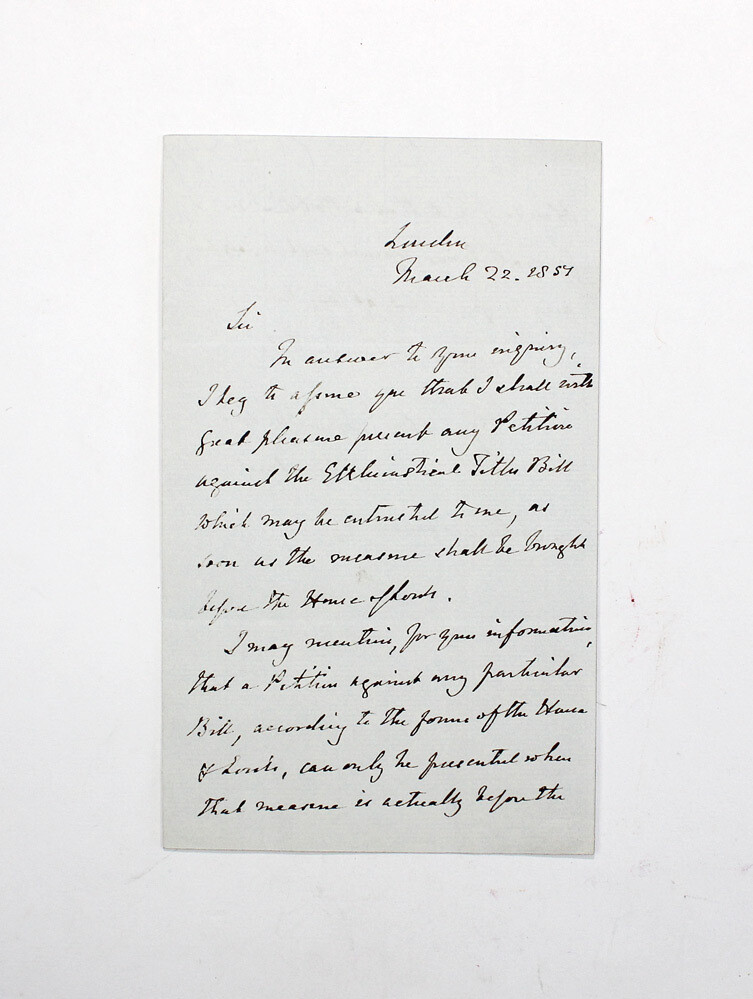 London
March 22. 1851
Sir
In answer to your inquiry,
I beg to assure you that I shall with
great pleasure present any Petition
against the Ecclesiastical Titles Bill
which may be entrusted to me, as
soon as the measure shall be brought
before the House of Lords.
I may mention, for your information,
that a Petition against any particular
Bill, according to the forms of the House
of Lords, can only be presented when
that measure is actually before the